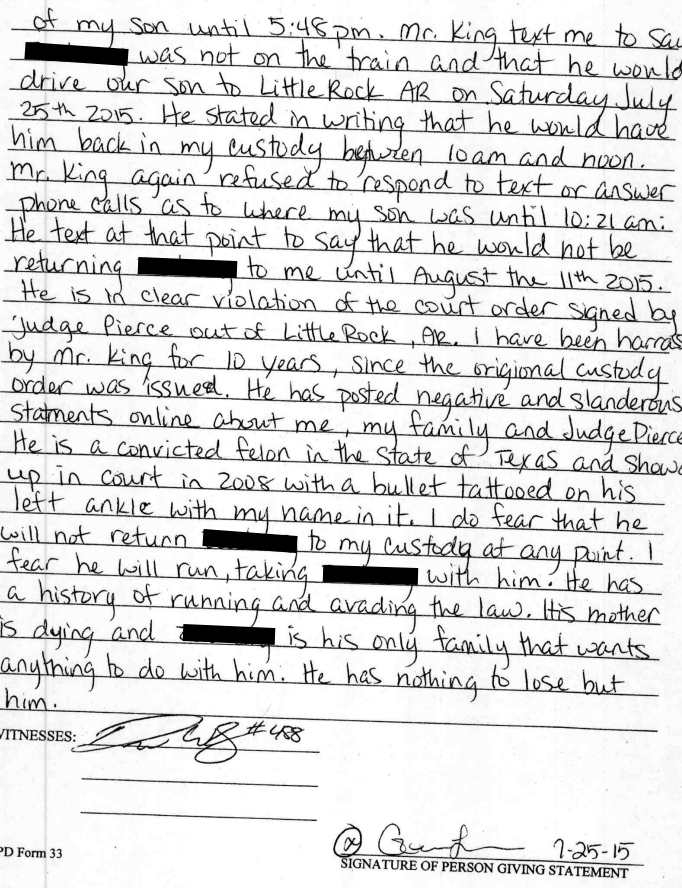 of my son until 5:48pm. Mr. King text me to say
was not on the train and that he would
drive our son to Little Rock AR on Saturday July
25th 2015. He stated in writing that he would have
him back in my custody between 10am and noon.
Mr. King again refused to respond to text or answer
phone calls as to where my son was until 10:21 am.
He text at that point to say that he would not be
returning to me until August the 11th 2015.
He is in clear violation of the court order signed by
judge Pierce out of Little Rock, AR. I have been harras
by Mr. King for 10 years, since the origional custody
order was issued. He has posted negative and slanderous
statments online about me, my family and Judge Pierce
He is a convicted felon in the State of Texas and showe
up in court in 2008 with a bullet tattooed on his
left ankle with my name in it. I do fear that he
will not return to my custody at any point. I
fear he will run, taking with him. He has
a history of running and avading the law. His mother
is dying and is his only family that wants
anything to do with him. He has nothing to lose but
him.
WITNESSES: #488
PD Form 33
7-25-15
SIGNATURE OF PERSON GIVING STATEMENT